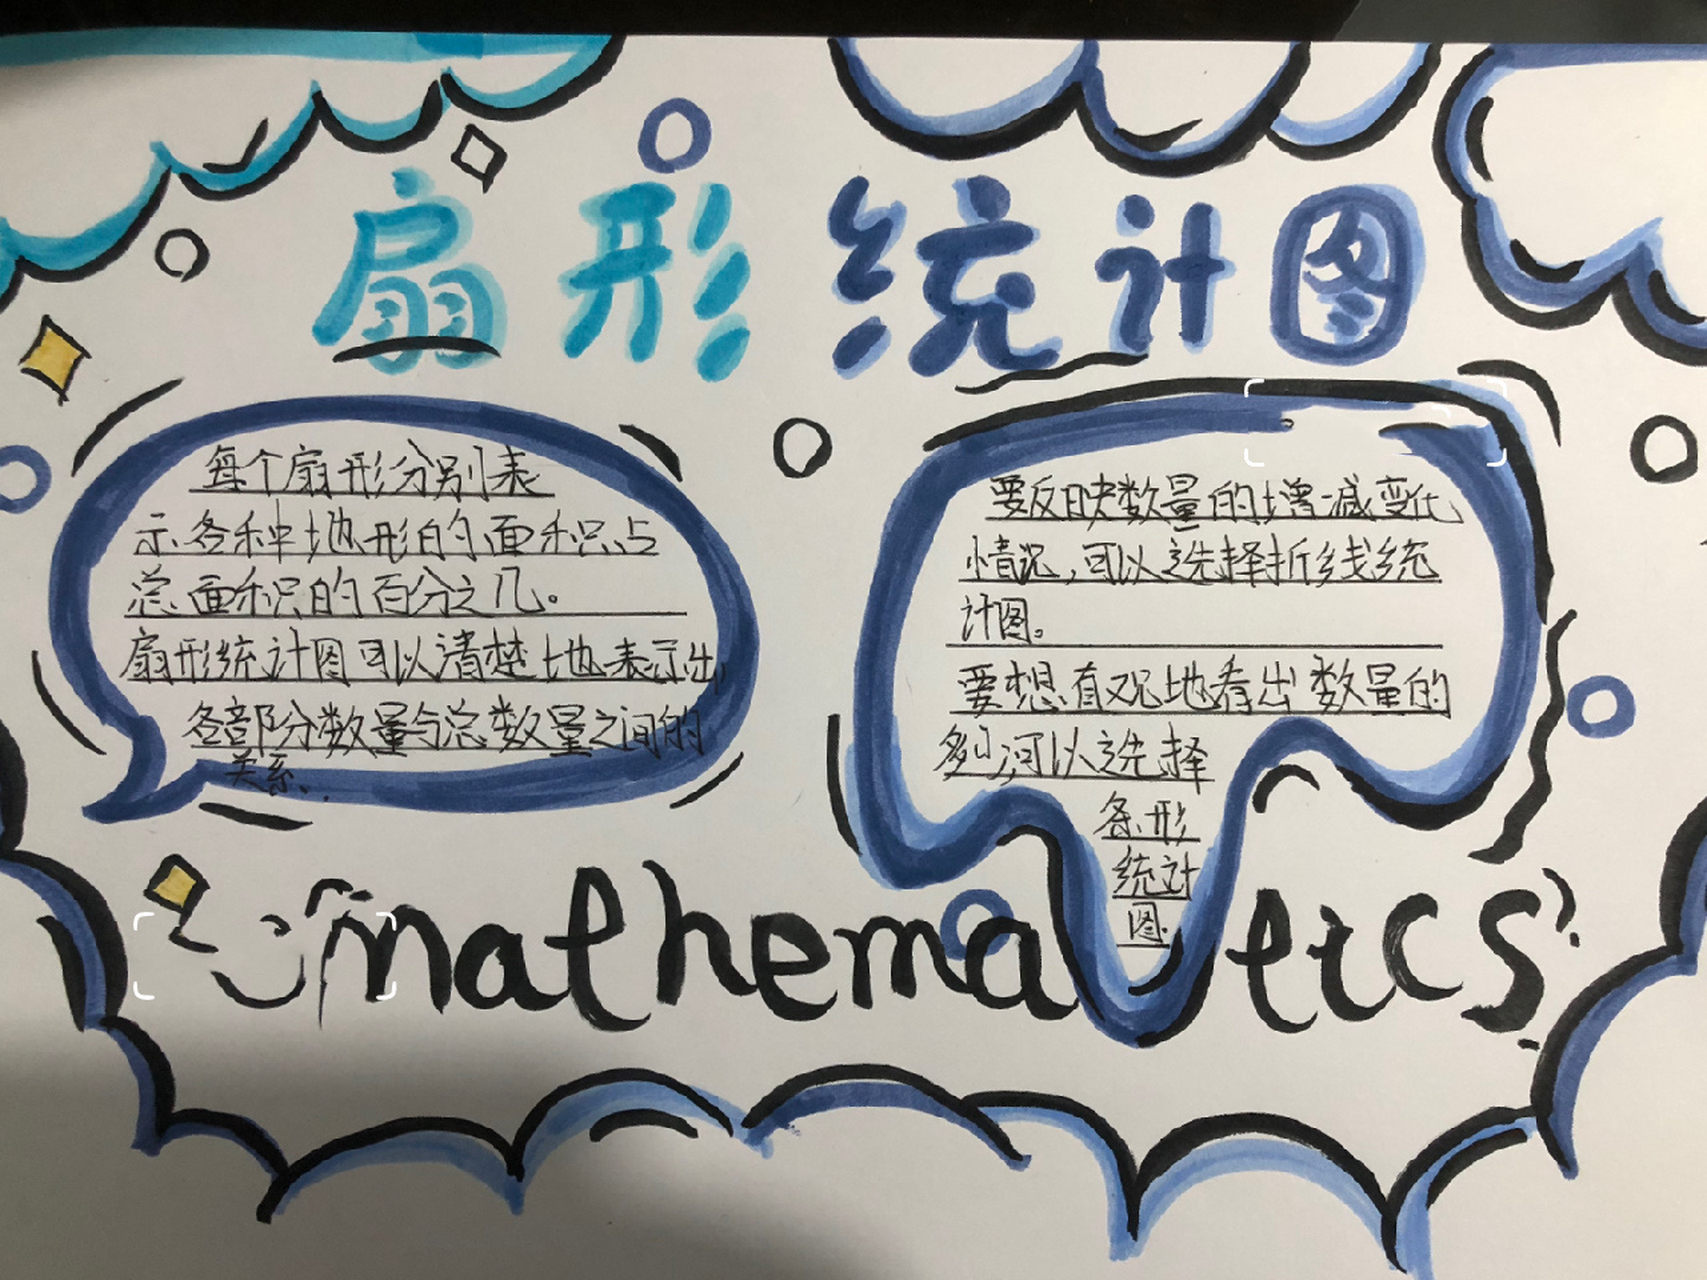 扇形统计图
每个扇形分别表
示各种地形的面积占
总面积的百分之几。
扇形统计图可以清楚地表示出
各部分数量与总数量之间的
关系.
要反映数量的增减变化
情况,可以选择折线统
计图。
要想直观地看出数量的
多少,可以选择
条形
统计
图.
mathematics